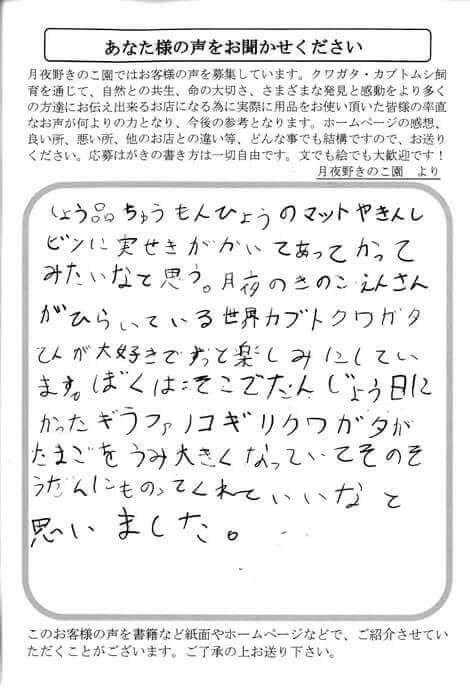 あなた様の声をお聞かせください
月夜野きのこ園ではお客様の声を募集しています。クワガタ・カブトムシ飼
育を通じて、自然との共生、命の大切さ、さまざまな発見と感動をより多く
の方達にお伝え出来るお店になる為に実際に用品をお使い頂いた皆様の率直
なお声が何よりの力となり、今後の参考となります。ホームページの感想、
良い所、悪い所、他のお店との違い等、どんな事でも結構ですので、お送り
ください。応募はがきの書き方は一切自由です。文でも絵でも大歓迎です！
月夜野きのこ園　より
しょう品ちゅうもんひょうのマットやきんし
ビンに実せきがかいてあってかって
みたいなと思う。月夜のきのこえんさん
がひらいている世界カブトクワガタ
てんが大好きでずっと楽しみにしてい
ます。ぼくは、そこでたんじょう日に
かったギラファノコギリクワガタが
たまごをうみ大きくなっていてそのそ
うだんにものってくれていいなと
思いました。
このお客様の声を書籍など紙面やホームページなどで、ご紹介させてい
ただくことがございます。ご了承の上お送り下さい。